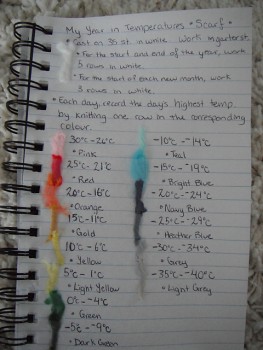 My Year in Temperatures *Scarf*
• Cast on 35 st. in white. Work in garter st.
• For the start and end of the year, work
5 rows in white.
• For the start of each new month, work
3 rows in white.
• Each day, record the days highest temp.
by knitting one row in the corresponding
colour.
30°c - 26°c
• Pink
25°c - 21°c
• Red
20°c - 16°c
• Orange
15°c - 11°c
• Gold
10°c - 6°c
• Yellow
5°c - 1°c
• Light Yellow
0°c - -4°c
• Green
-5°c - -9°c
• Dark Green
-10°c - -14°c
• Teal
-15°c - -19°c
• Bright Blue
-20°c - -24°c
• Navy Blue
-25°c - -29°c
• Heather Blue
-30°c - -34°c
• Grey
-35°c - -40°c
• Light Grey